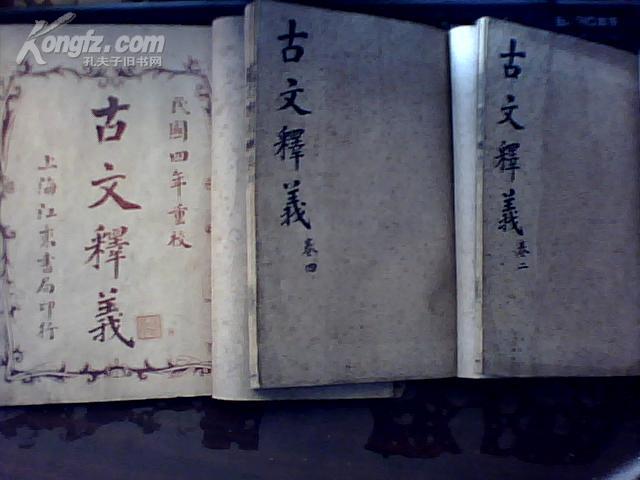 Kongfz.com
孔夫子旧书网
民國四年重校
古文釋義
上海江東書局印行
古文釋義
卷四
古文釋義
卷二